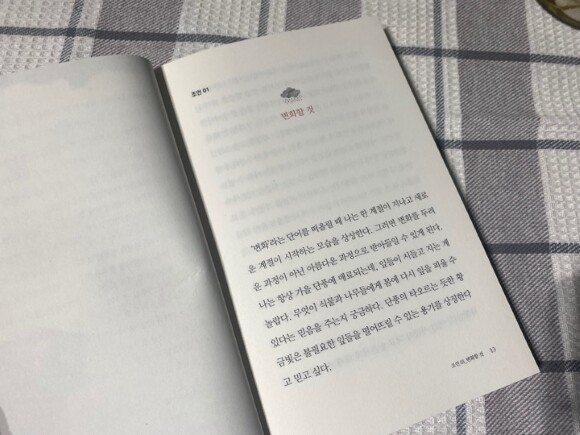 조언 01
변화할 것
'변화'라는 단어를 떠올릴 때 나는 한 계절이 지나고 새로
운 계절이 시작하는 모습을 상상한다. 그러면 변화를 두려
운 과정이 아닌 아름다운 과정으로 받아들일 수 있게 된다.
나는 항상 가을 단풍에 매료되는데, 잎들이 시들고 지는 게
놀랍다. 무엇이 식물과 나무들에게 봄에 다시 잎을 피울 수
있다는 믿음을 주는지 궁금하다. 단풍의 타오르는 듯한 황
금빛은 불필요한 잎들을 떨어뜨릴 수 있는 용기를 상징한다
고 믿고 싶다.
조언 01, 변화할 것 13